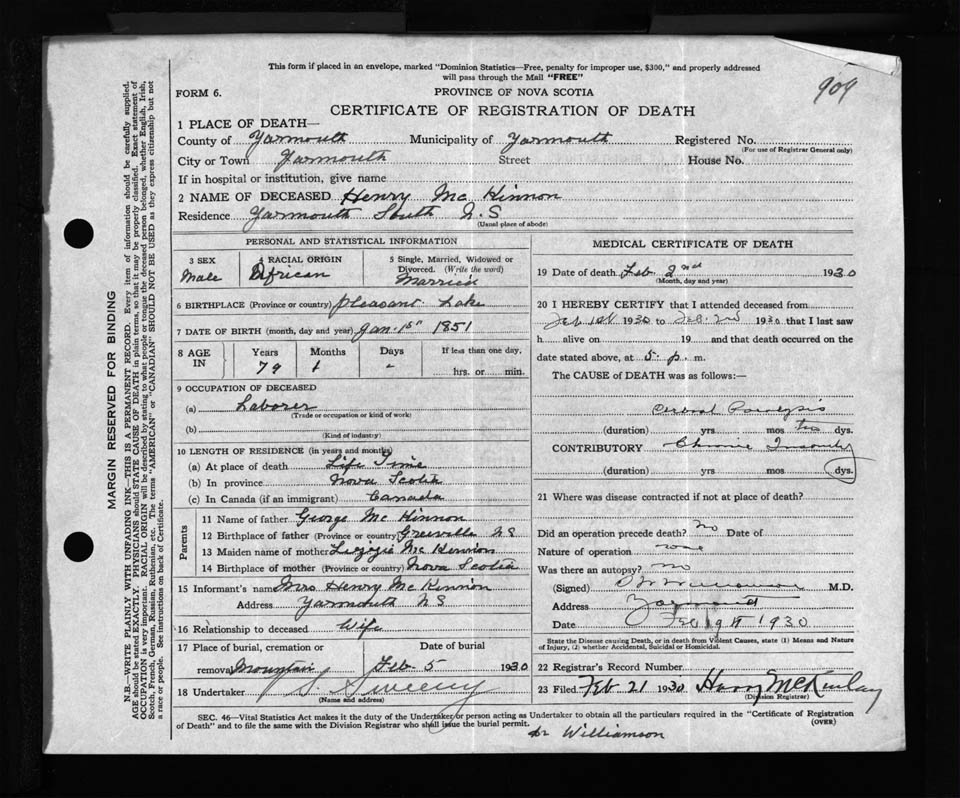 This form if placed in an envelope, marked "Dominion Statistics—Free, penalty for improper use, $300," and properly addressed
will pass through the Mail "FREE"
909
FORM 6.
PROVINCE OF NOVA SCOTIA
CERTIFICATE OF REGISTRATION OF DEATH
1 PLACE OF DEATH—
County of Yarmouth Municipality of Yarmouth Registered No.
(For use of Registrar General only)
City or Town Yarmouth Street House No.
If in hospital or institution, give name
2 NAME OF DECEASED Henry Mc Kinnon
Residence Yarmouth South N.S
(Usual place of abode)
PERSONAL AND STATISTICAL INFORMATION
3 SEX
Male
4 RACIAL ORIGIN
African
5 Single, Married, Widowed or
Divorced. (Write the word)
Married
6 BIRTHPLACE (Province or country) Pleasant Lake
7 DATE OF BIRTH (month, day and year) Jan. 1st 1851
8 AGE IN
Years Months Days If less than one day,
79 1 - hrs. or min.
9 OCCUPATION OF DECEASED
(a) Laborer
(Trade or occupation or kind of work)
(b)
(Kind of industry)
10 LENGTH OF RESIDENCE (in years and months)
(a) At place of death Life Time
(b) In province Nova Scotia
(c) In Canada (if an immigrant) Canada
Parents
11 Name of father George Mc Kinnon
12 Birthplace of father (Province or country) Greenville NS
13 Maiden name of mother Lizzie Mc Kinnon
14 Birthplace of mother (Province or country) Nova Scotia
15 Informant's name Mrs Henry Mc Kinnon
Address Yarmouth NS
16 Relationship to deceased Wife
17 Place of burial, cremation or Date of burial
removal Mountain Feb 5 1930
18 Undertaker Sweeny
(Name and address)
MEDICAL CERTIFICATE OF DEATH
19 Date of death Feb. 2nd 1930
(Month, day and year)
20 I HEREBY CERTIFY that I attended deceased from
Feb 1st 1930 to Feb. 2nd 1930 that I last saw
h alive on 19 and that death occurred on the
date stated above, at 5 p. m.
The CAUSE of DEATH was as follows:—
Cerebral Paralysis
(duration) yrs. mos two dys.
CONTRIBUTORY Chronic
(duration) yrs. mos dys.
21 Where was disease contracted if not at place of death?
Did an operation precede death? No Date of
Nature of operation none
Was there an autopsy? No
(Signed) M.D.
Address Yarmouth
Date Feb 19th 1930
State the Disease causing Death, or in death from Violent Causes, state (1) Means and Nature
of Injury, (2) whether Accidental, Suicidal or Homicidal.
22 Registrar's Record Number
23 Filed Feb 21 1930 Harry McKinlay
(Division Registrar)
SEC. 46—Vital Statistics Act makes it the duty of the Undertaker or person acting as Undertaker to obtain all the particulars required in the "Certificate of Registration
of Death" and to file the same with the Division Registrar who shall issue the burial permit.
(OVER)
Dr Williamson
MARGIN RESERVED FOR BINDING
N.B.—WRITE PLAINLY WITH UNFADING INK—THIS IS A PERMANENT RECORD. Every item of information should be carefully supplied.
AGE should be stated EXACTLY. PHYSICIANS should STATE CAUSE OF DEATH in plain terms, so that it may be properly classified. Exact statement of
OCCUPATION is very important. RACIAL ORIGIN will be described by stating to what people or tongue the deceased person belonged, whether English, Irish,
Scotch, French, German, Russian, Ruthenian, etc. The terms "AMERICAN" or "CANADIAN" SHOULD NOT BE USED as they express citizenship but not
a race or people. See instructions on back of Certificate.